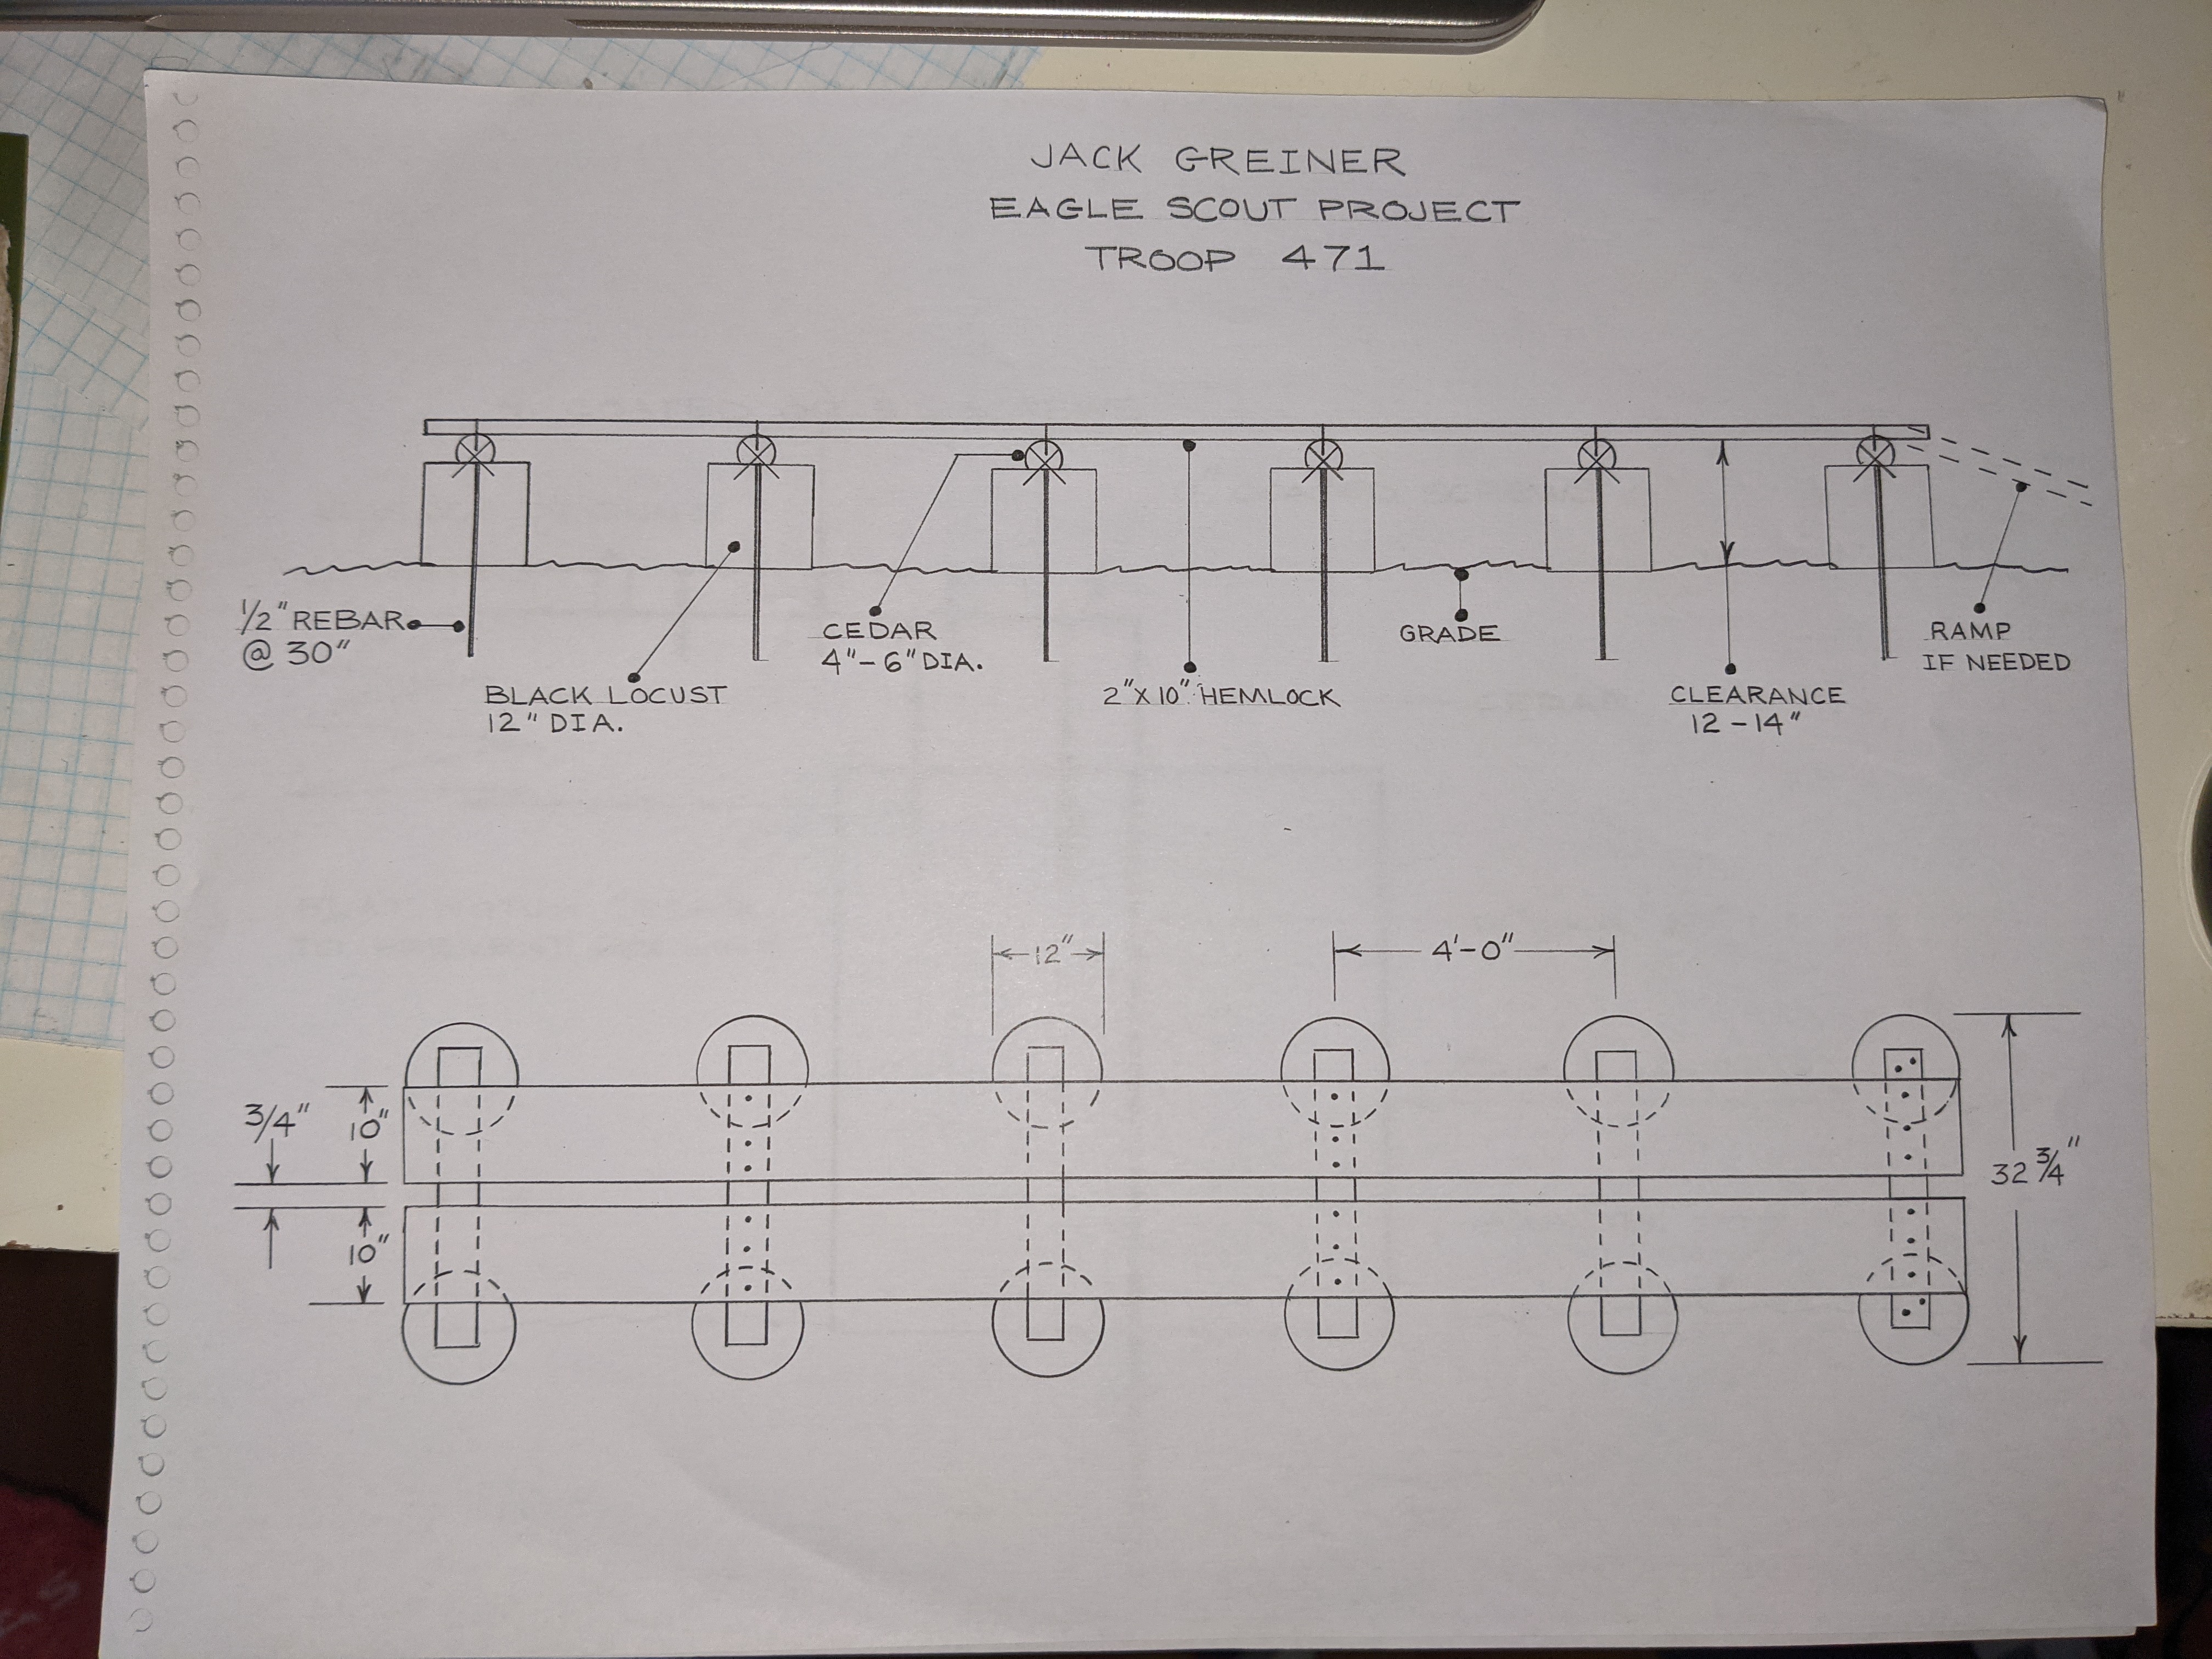 JACK GREINER
EAGLE SCOUT PROJECT
TROOP 471
1/2" REBAR
@ 30"
BLACK LOCUST
12" DIA.
CEDAR
4"-6" DIA.
2"X10" HEMLOCK
GRADE
CLEARANCE
12-14"
RAMP
IF NEEDED
12"
4'-0"
3/4"
10"
10"
32 3/4"